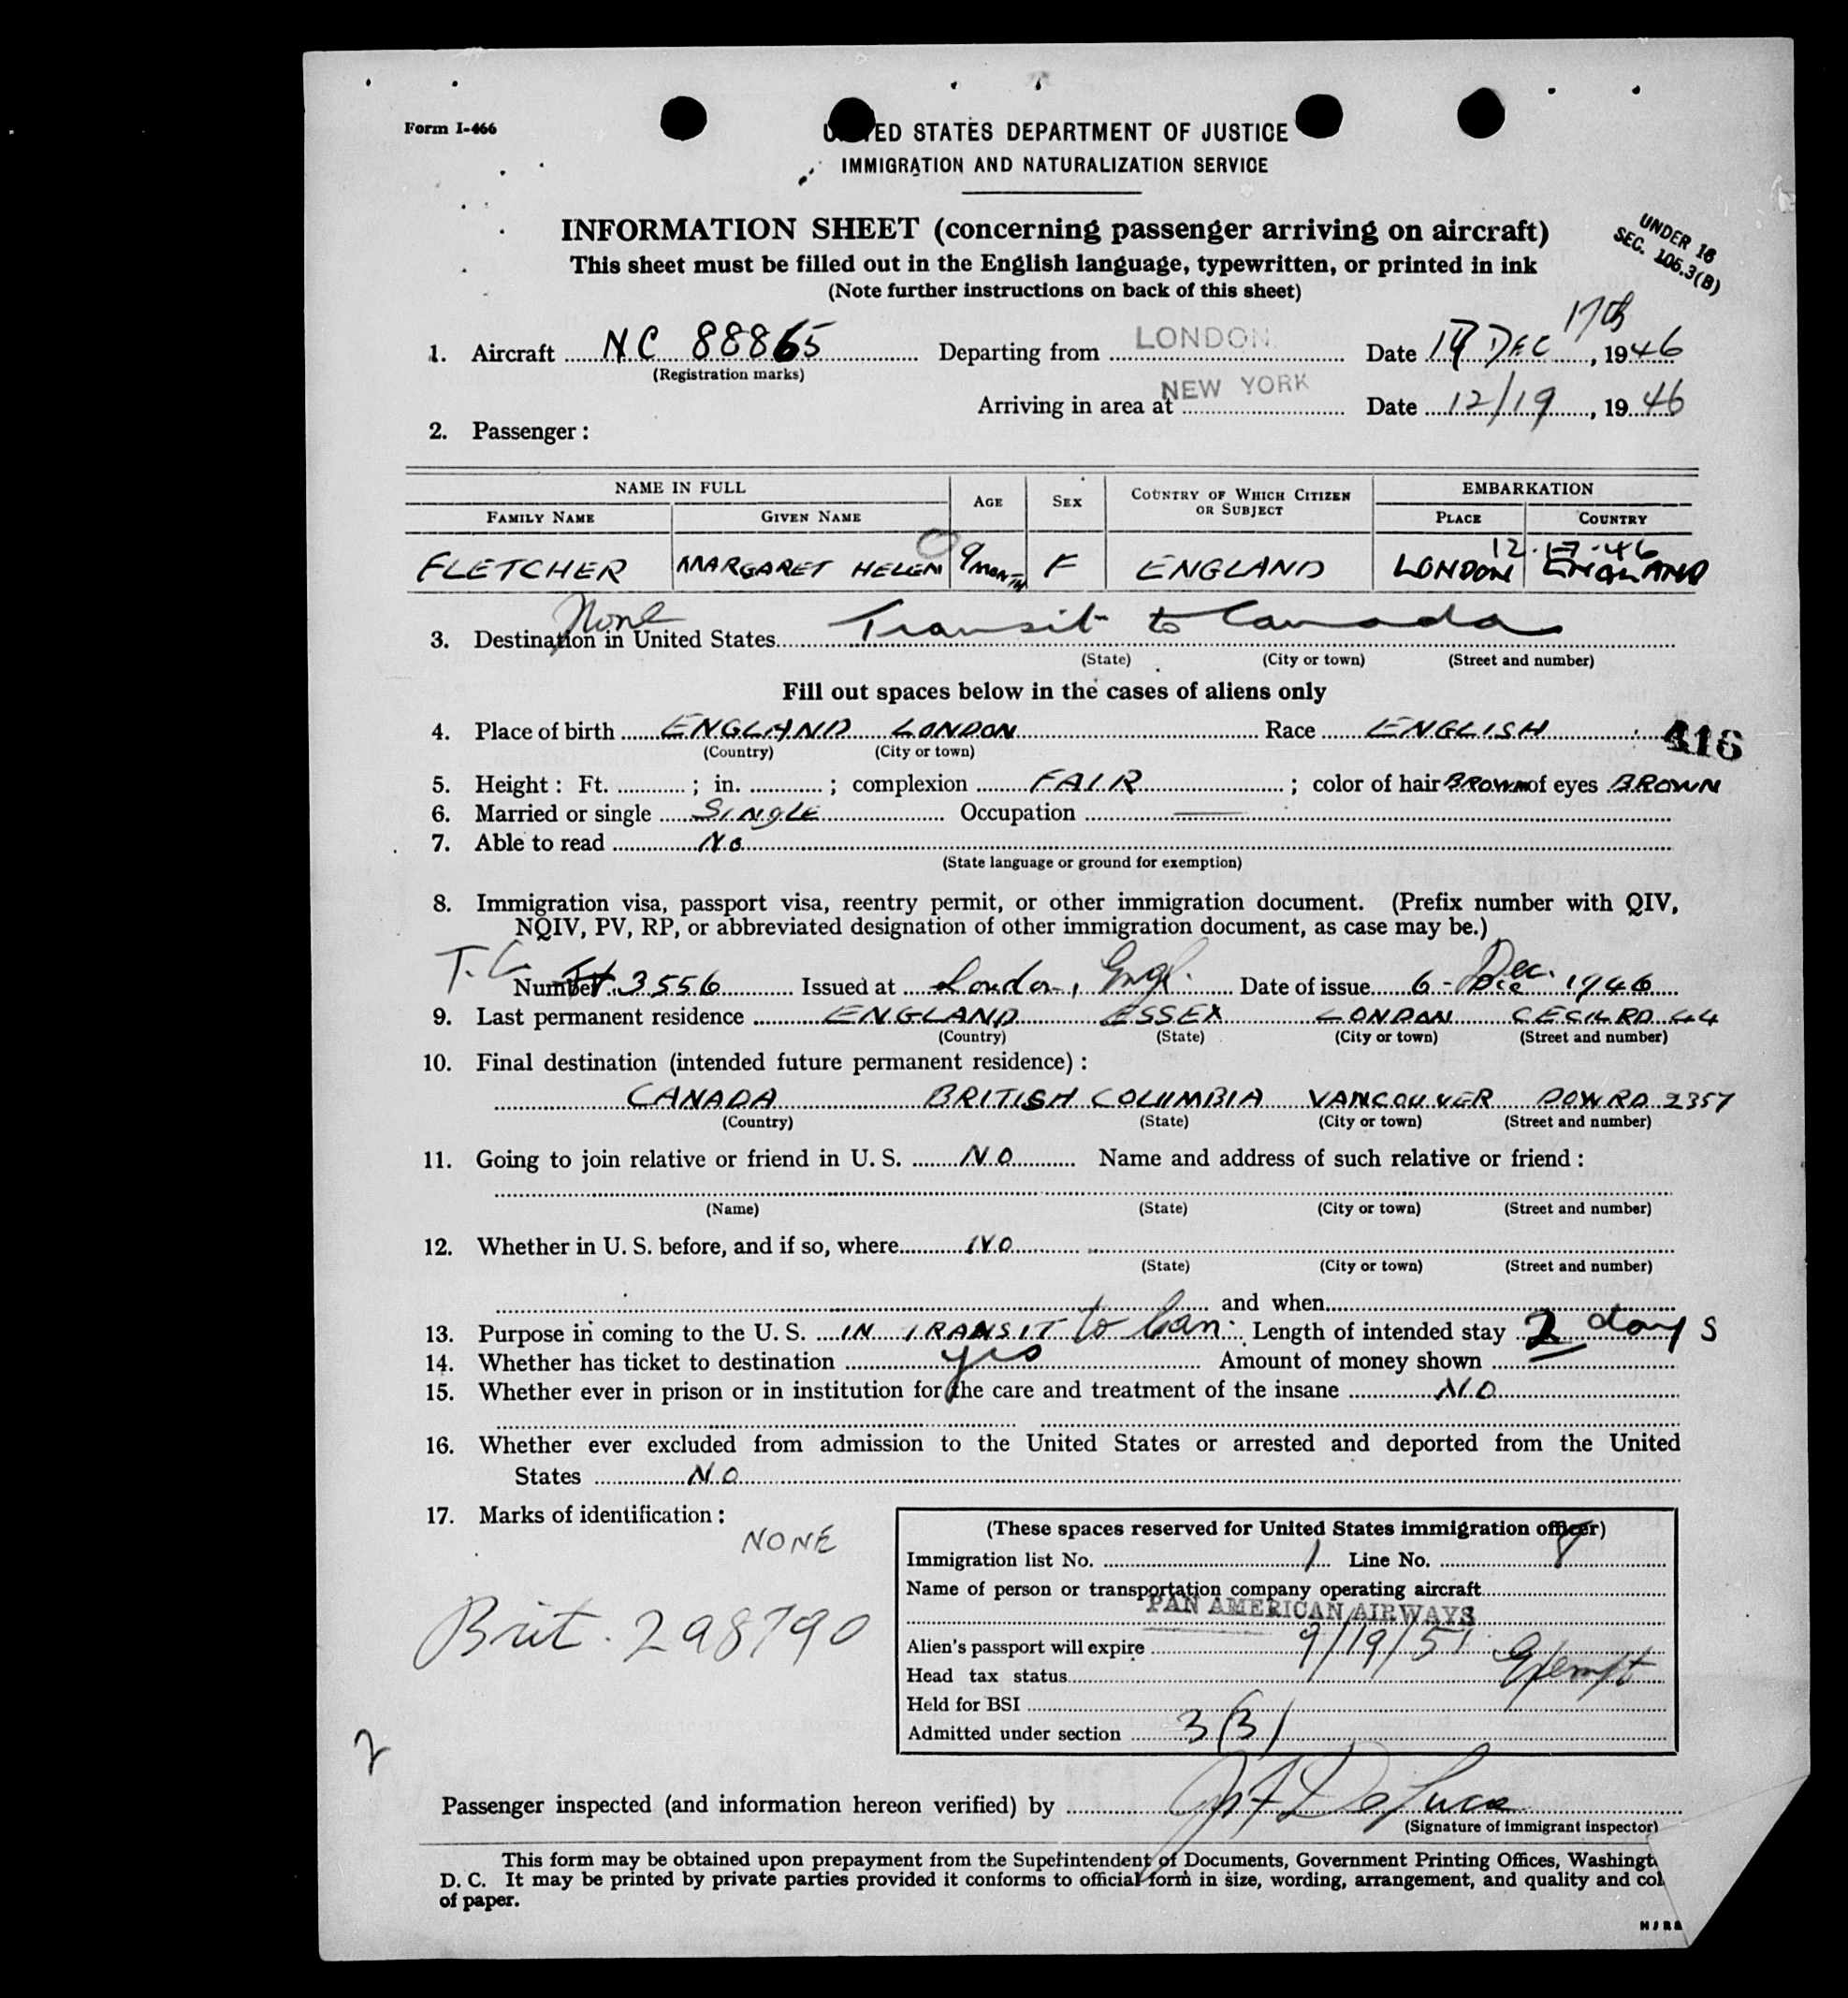 Form I-466
UNITED STATES DEPARTMENT OF JUSTICE
IMMIGRATION AND NATURALIZATION SERVICE
INFORMATION SHEET (concerning passenger arriving on aircraft)
This sheet must be filled out in the English language, typewritten, or printed in ink
(Note further instructions on back of this sheet)
UNDER 16
SEC. 105.3(B)
17th
1. Aircraft NC 88865 Departing from LONDON Date DEC, 1946
(Registration marks)
Arriving in area at NEW YORK Date 12/19, 1946
2. Passenger:
NAME IN FULL AGE SEX COUNTRY OF WHICH CITIZEN OR SUBJECT EMBARKATION
FAMILY NAME GIVEN NAME PLACE COUNTRY
12-17-46
FLETCHER MARGARET HELEN 9 MONTH F ENGLAND LONDON ENGLAND
None
3. Destination in United States Transit to Canada
(State) (City or town) (Street and number)
Fill out spaces below in the cases of aliens only
4. Place of birth ENGLAND LONDON Race ENGLISH 416
(Country) (City or town)
5. Height: Ft. ; in. ; complexion FAIR ; color of hair BROWN of eyes BROWN
6. Married or single SINGLE Occupation —
7. Able to read No
(State language or ground for exemption)
8. Immigration visa, passport visa, reentry permit, or other immigration document. (Prefix number with QIV,
NQIV, PV, RP, or abbreviated designation of other immigration document, as case may be.)
T.C.
Number 3556 Issued at London, Engl. Date of issue 6 - Dec. 1946
9. Last permanent residence ENGLAND ESSEX LONDON CECIL RD 44
(Country) (State) (City or town) (Street and number)
10. Final destination (intended future permanent residence):
CANADA BRITISH COLUMBIA VANCOUVER DOW RD 2357
(Country) (State) (City or town) (Street and number)
11. Going to join relative or friend in U. S. NO Name and address of such relative or friend:
(Name) (State) (City or town) (Street and number)
12. Whether in U. S. before, and if so, where NO
(State) (City or town) (Street and number)
and when
13. Purpose in coming to the U. S. IN TRANSIT to Can. Length of intended stay 2 days
14. Whether has ticket to destination yes Amount of money shown
15. Whether ever in prison or in institution for the care and treatment of the insane NO
16. Whether ever excluded from admission to the United States or arrested and deported from the United
States NO
17. Marks of identification:
NONE
Brit. 298790
2
(These spaces reserved for United States immigration officer)
Immigration list No. 1 Line No. 8
Name of person or transportation company operating aircraft
PAN AMERICAN AIRWAYS
Alien's passport will expire 9/19/51
Head tax status Exempt
Held for BSI
Admitted under section 3(3)
Passenger inspected (and information hereon verified) by
(Signature of immigrant inspector)
This form may be obtained upon prepayment from the Superintendent of Documents, Government Printing Offices, Washingt
D. C. It may be printed by private parties provided it conforms to official form in size, wording, arrangement, and quality and col
of paper.